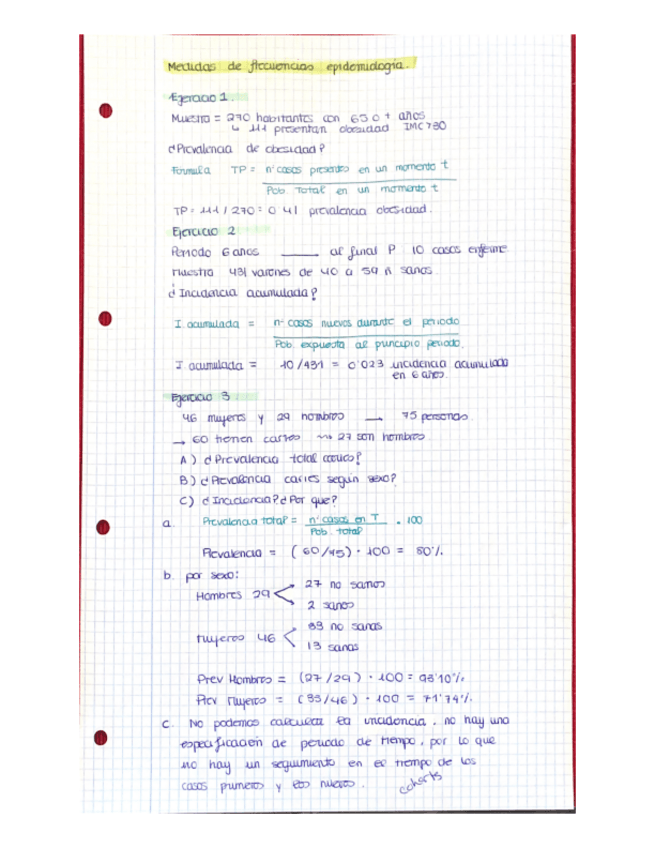 Medidas de frecuencias epidemiología.
Ejercicio 1.
Muestra = 270 habitantes con 65 o + años
↳ 111 presentan obesidad IMC >30
¿Prevalencia de obesidad?
Formula TP = nº casos presentes en un momento t
Pob. Total en un momento t
TP = 111 / 270 = 0'41 prevalencia obesidad.
Ejercicio 2
Periodo 6 años ——— al final P 10 casos enferme
muestra 431 varones de 40 a 59 a sanos
¿Incidencia acumulada?
I. acumulada = nº casos nuevos durante el periodo
Pob. expuesta al principio periodo.
I. acumulada = 10/431 = 0'023 incidencia acumulada
en 6 años.
Ejercicio 3
46 mujeres y 29 hombres → 75 personas.
→ 60 tienen caries ⇝ 27 son hombres
A) ¿Prevalencia total caries?
B) ¿Prevalencia caries según sexo?
C) ¿Incidencia? ¿Por que?
a. Prevalencia total = nº casos en T · 100
Pob. total
Prevalencia = (60/75) · 100 = 80%.
b. por sexo:
27 no sanos
Hombres 29
2 sanos
33 no sanas
Mujeres 46
13 sanas
Prev Hombres = (27/29) · 100 = 93'10%.
Prev Mujeres = (33/46) · 100 = 71'74%.
c. No podemos calcular la incidencia, no hay una
especificación de periodo de tiempo, por lo que
no hay un seguimiento en el tiempo de los
casos primeros y los nuevos. cohorts